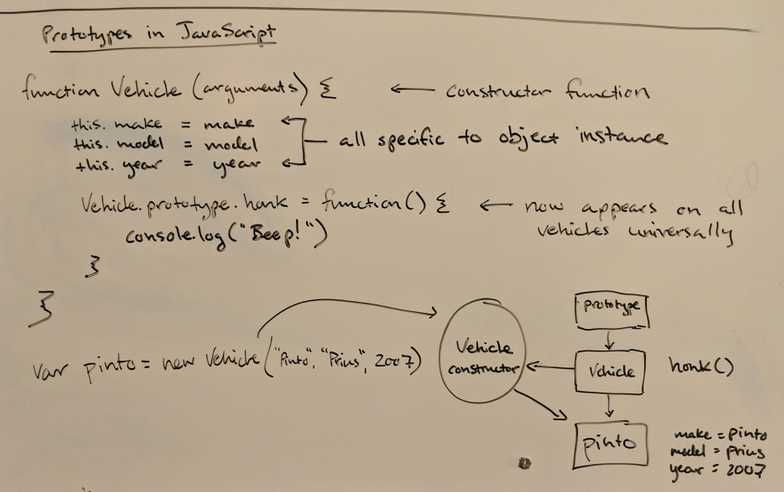 Prototypes in JavaScript
function Vehicle (arguments) { ← constructor function
this.make = make
this.model = model
this.year = year
all specific to object instance
Vehicle.prototype.honk = function() { ← now appears on all
vehicles universally
console.log("Beep!")
}
}
var pinto = new Vehicle("Pinto", "Prius", 2007)
Vehicle
constructor
prototype
Vehicle
honk()
pinto
make = pinto
model = prius
year = 2007